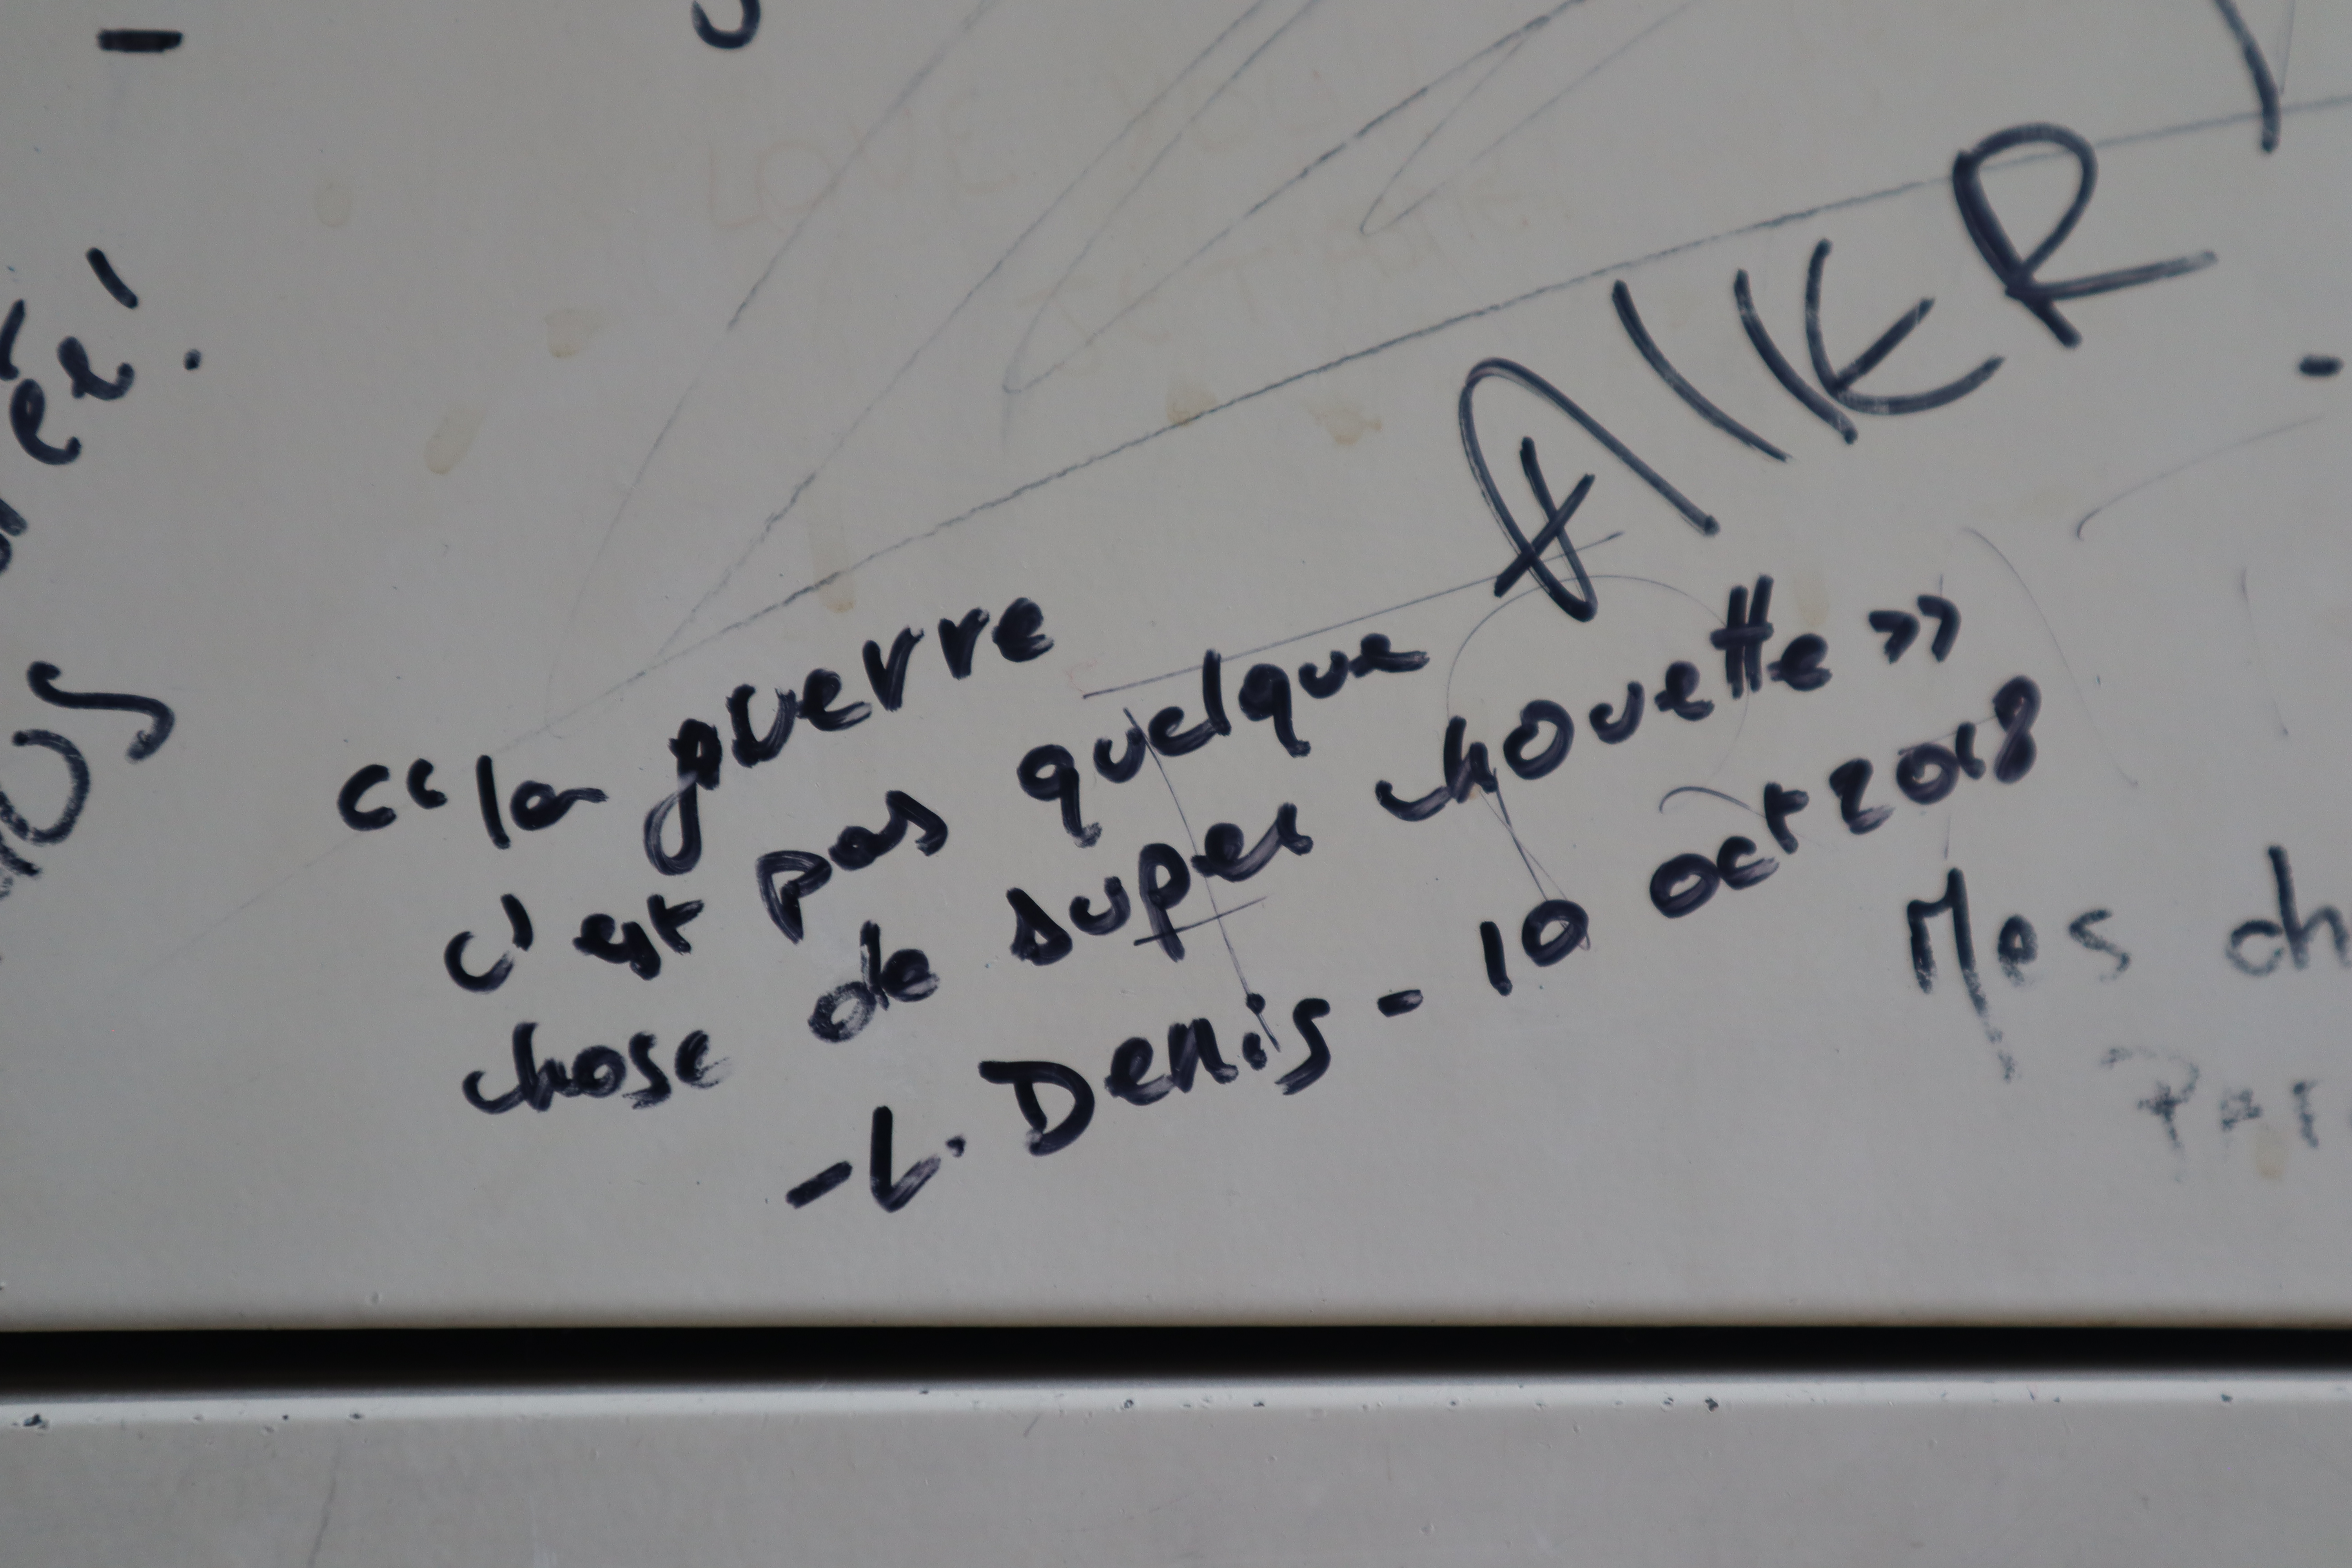 AIKER
«la guerre
c'est pas quelque
chose de super chouette»
-L. Denis - 10 oct 2018
Mes ch